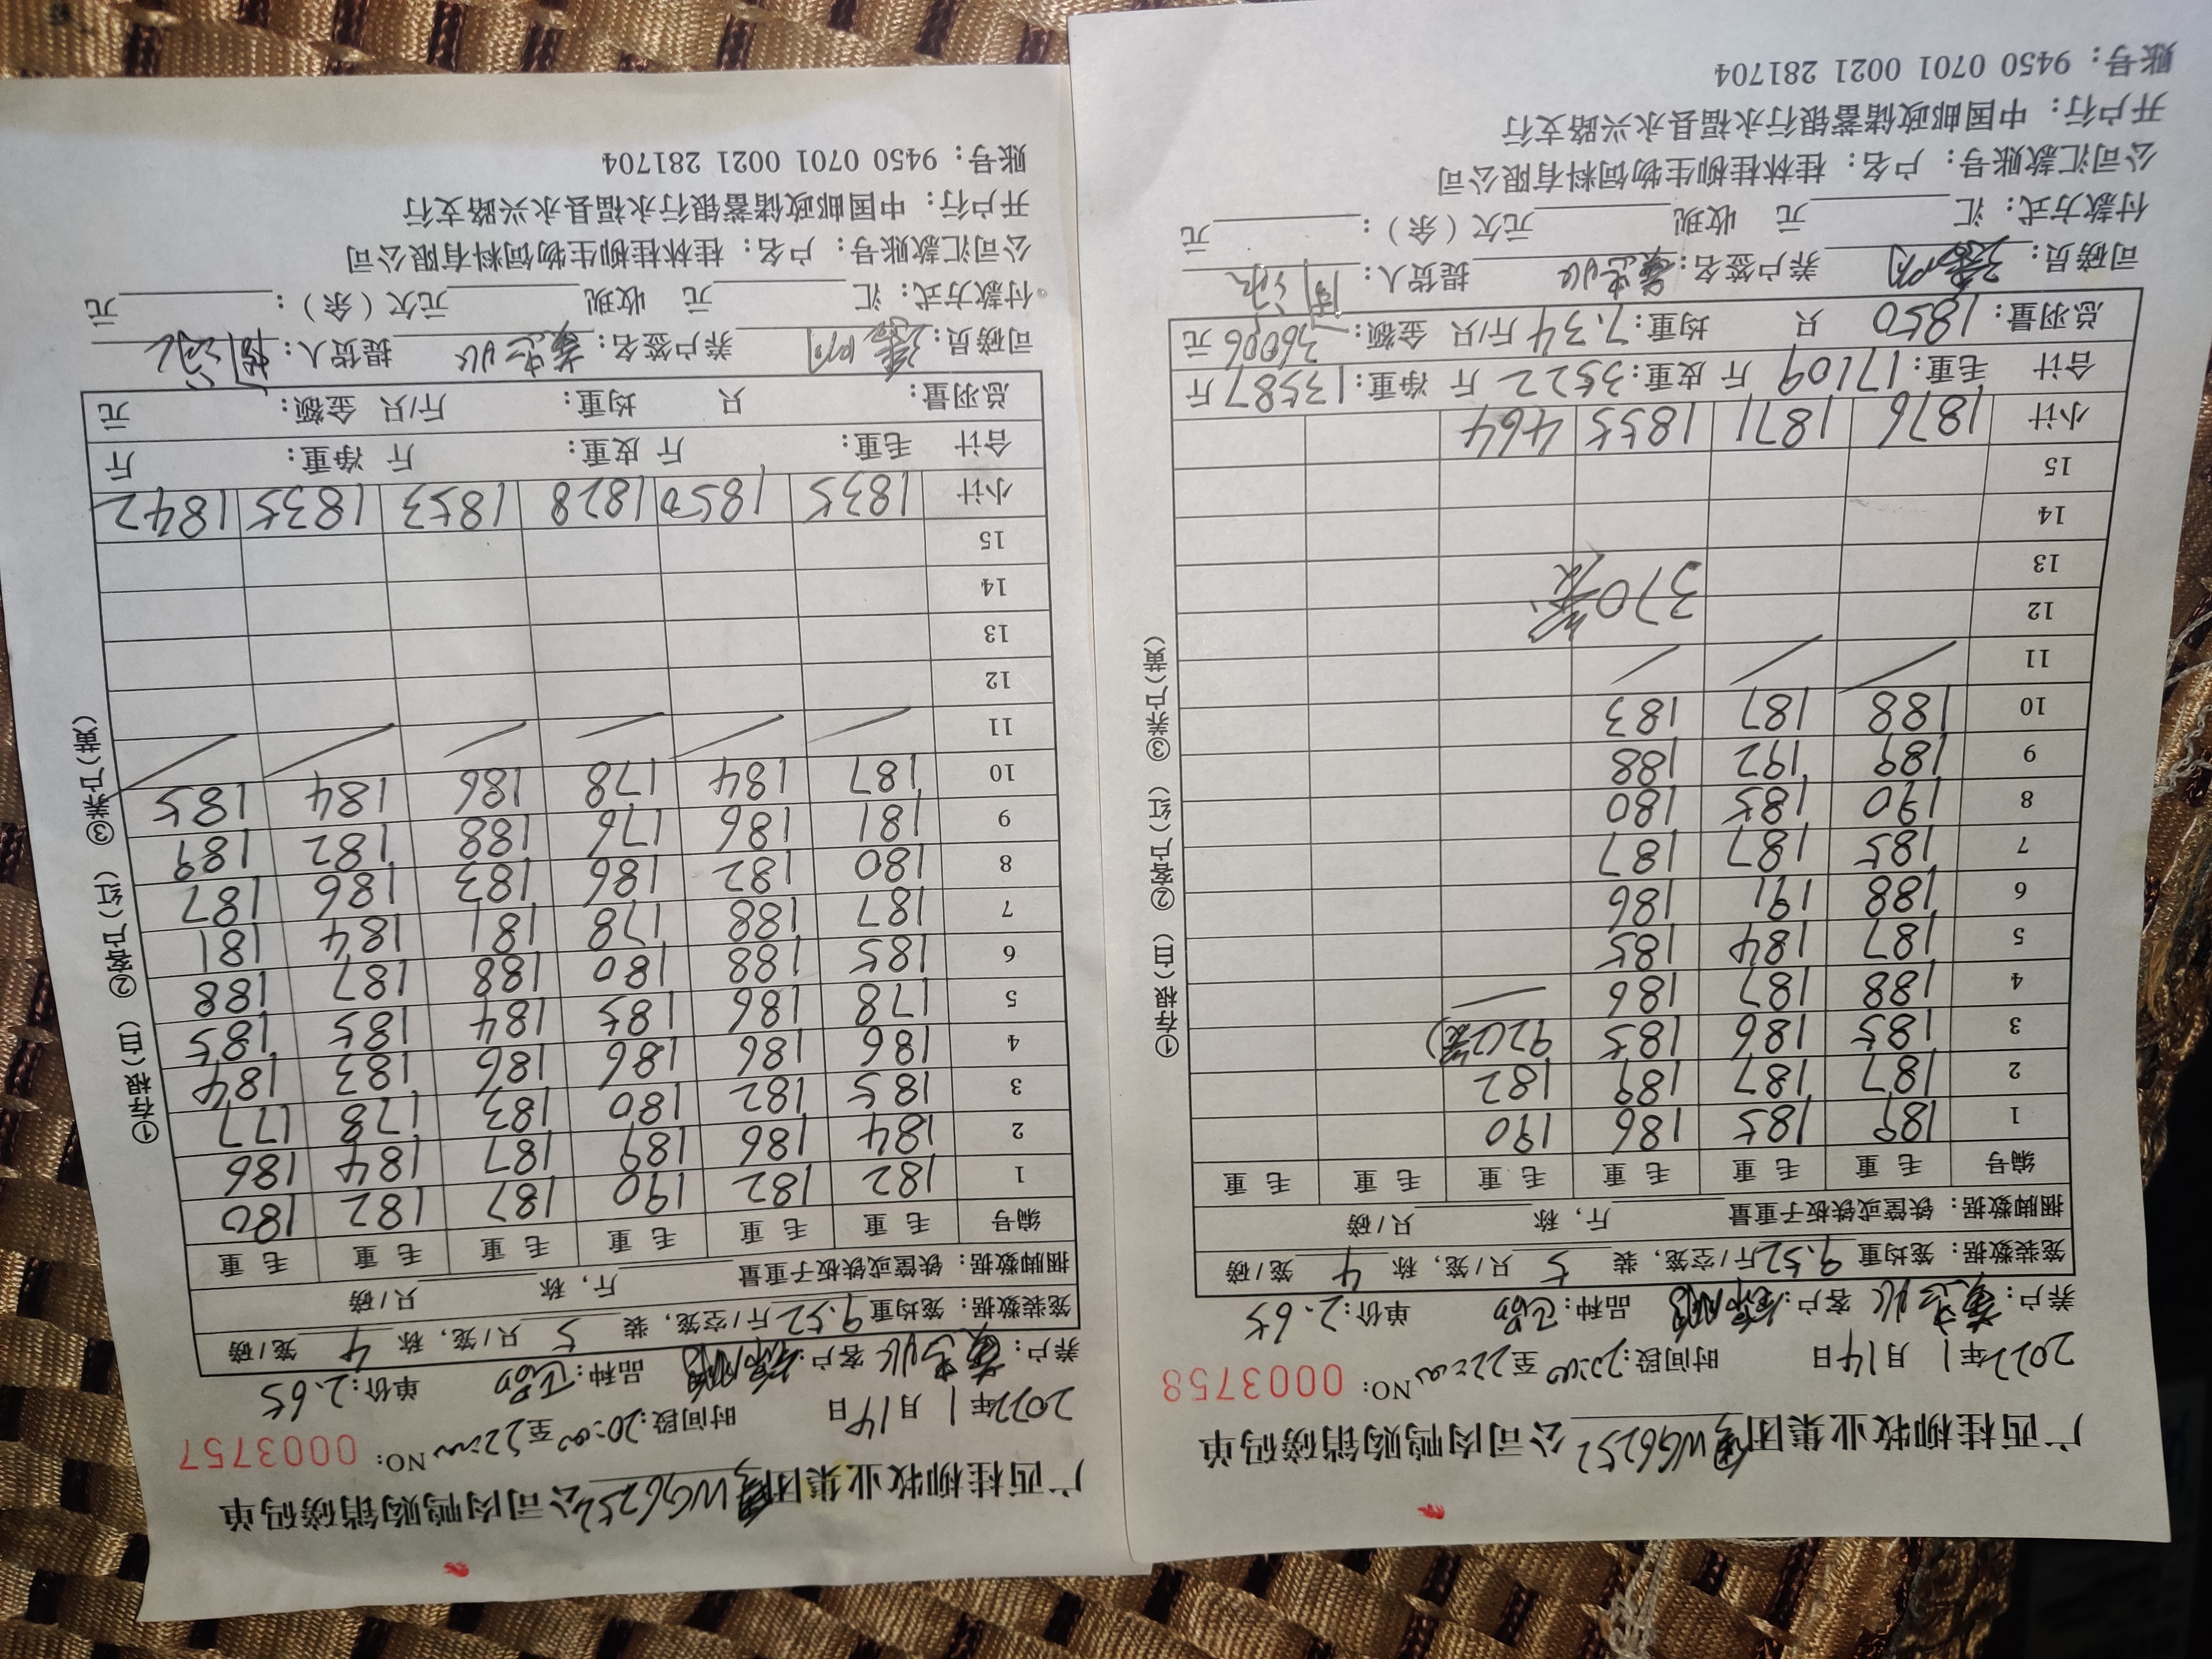 广西桂柳牧业集团 WG6252 公司肉鸭购销磅码单
2022年1月14日 时间段:20:00至22:00 NO: 0003758
养户: 客户: 品种: 单价:2.65
笼装数据: 笼均重 9.52 斤/空笼, 装 5 只/笼, 称 4 笼/磅
捆脚数据: 铁筐或铁板子重量 斤, 称 只/磅
编号 毛重 毛重 毛重 毛重 毛重 毛重
1 189 185 186 190
2 187 187 189 182
3 185 186 185 92(2笼)
4 188 187 186
5 187 184 185
6 188 191 186
7 185 187 187
8 190 185 180
9 189 192 188
10 188 187 183
11
12 370笼
13
14
15
小计 1876 1871 1855 464
合计 毛重:17109 斤 皮重:3522 斤 净重:13587 斤
总羽量: 1850 只 均重:7.34 斤/只 金额: 36006 元
司磅员: 养户签名: 提货人:
付款方式: 汇 元 收现 元欠(余): 元
公司汇款账号: 户名: 桂林桂柳生物饲料有限公司
开户行: 中国邮政储蓄银行永福县永兴路支行
账号: 9450 0701 0021 281704
①存根(白) ②客户(红) ③养户(黄)
广西桂柳牧业集团 WG6252 公司肉鸭购销磅码单
2022年1月14日 时间段:20:00至22:00 NO: 0003757
养户: 客户: 品种: 单价:2.65
笼装数据: 笼均重 9.52 斤/空笼, 装 5 只/笼, 称 4 笼/磅
捆脚数据: 铁筐或铁板子重量 斤, 称 只/磅
编号 毛重 毛重 毛重 毛重 毛重 毛重
1 182 182 190 187 182 180
2 184 186 189 187 184 186
3 185 182 180 183 178 177
4 186 186 186 186 183 184
5 178 186 185 184 185 185
6 185 188 180 188 187 188
7 187 188 178 181 184 181
8 180 182 186 183 186 187
9 181 186 176 188 182 189
10 187 184 178 186 184 185
11
12
13
14
15
小计 1835 1850 1828 1853 1835 1842
合计 毛重: 斤 皮重: 斤 净重: 斤
总羽量: 只 均重: 斤/只 金额: 元
司磅员: 养户签名: 提货人:
付款方式: 汇 元 收现 元欠(余): 元
公司汇款账号: 户名: 桂林桂柳生物饲料有限公司
开户行: 中国邮政储蓄银行永福县永兴路支行
账号: 9450 0701 0021 281704
①存根(白) ②客户(红) ③养户(黄)